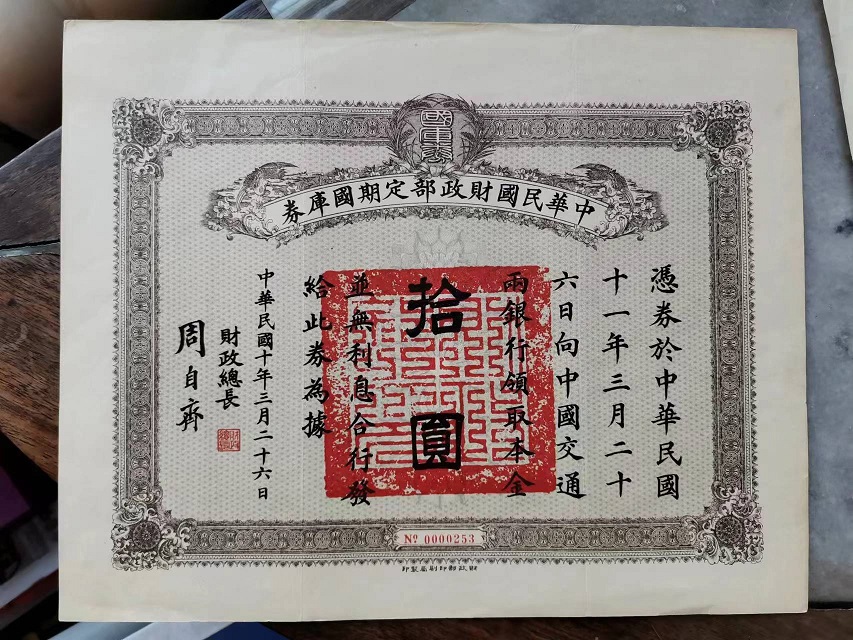 國庫券
中華民國財政部定期國庫券
憑券於中華民國
十一年三月二十
六日向中國交通
兩銀行領取本金
拾圓
並無利息合行發
給此券為據
中華民國十年三月二十六日
財政總長
周自齊
Nº 0000253
財政部印刷局製印